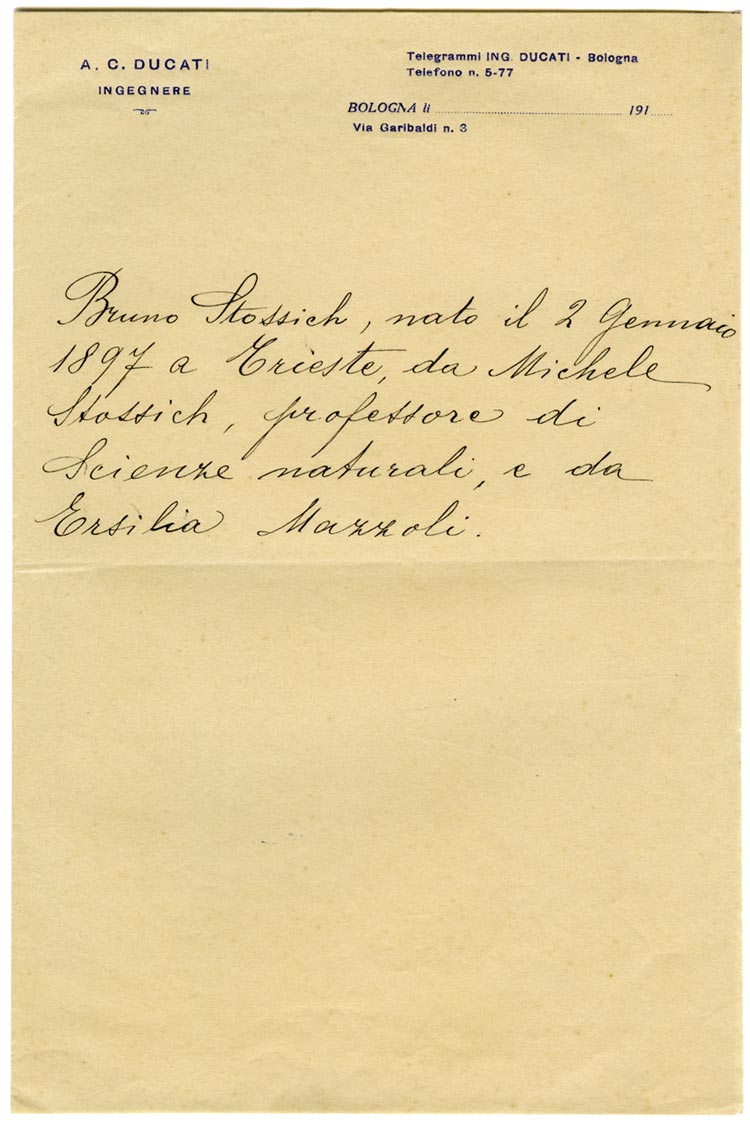 A. C. DUCATI
INGEGNERE
Telegrammi ING. DUCATI - Bologna
Telefono n. 5-77
BOLOGNA li ........................ 191......
Via Garibaldi n. 3
Bruno Stossich, nato il 2 Gennaio
1897 a Trieste, da Michele
Stossich, professore di
Scienze naturali, e da
Ersilia Mazzoli.